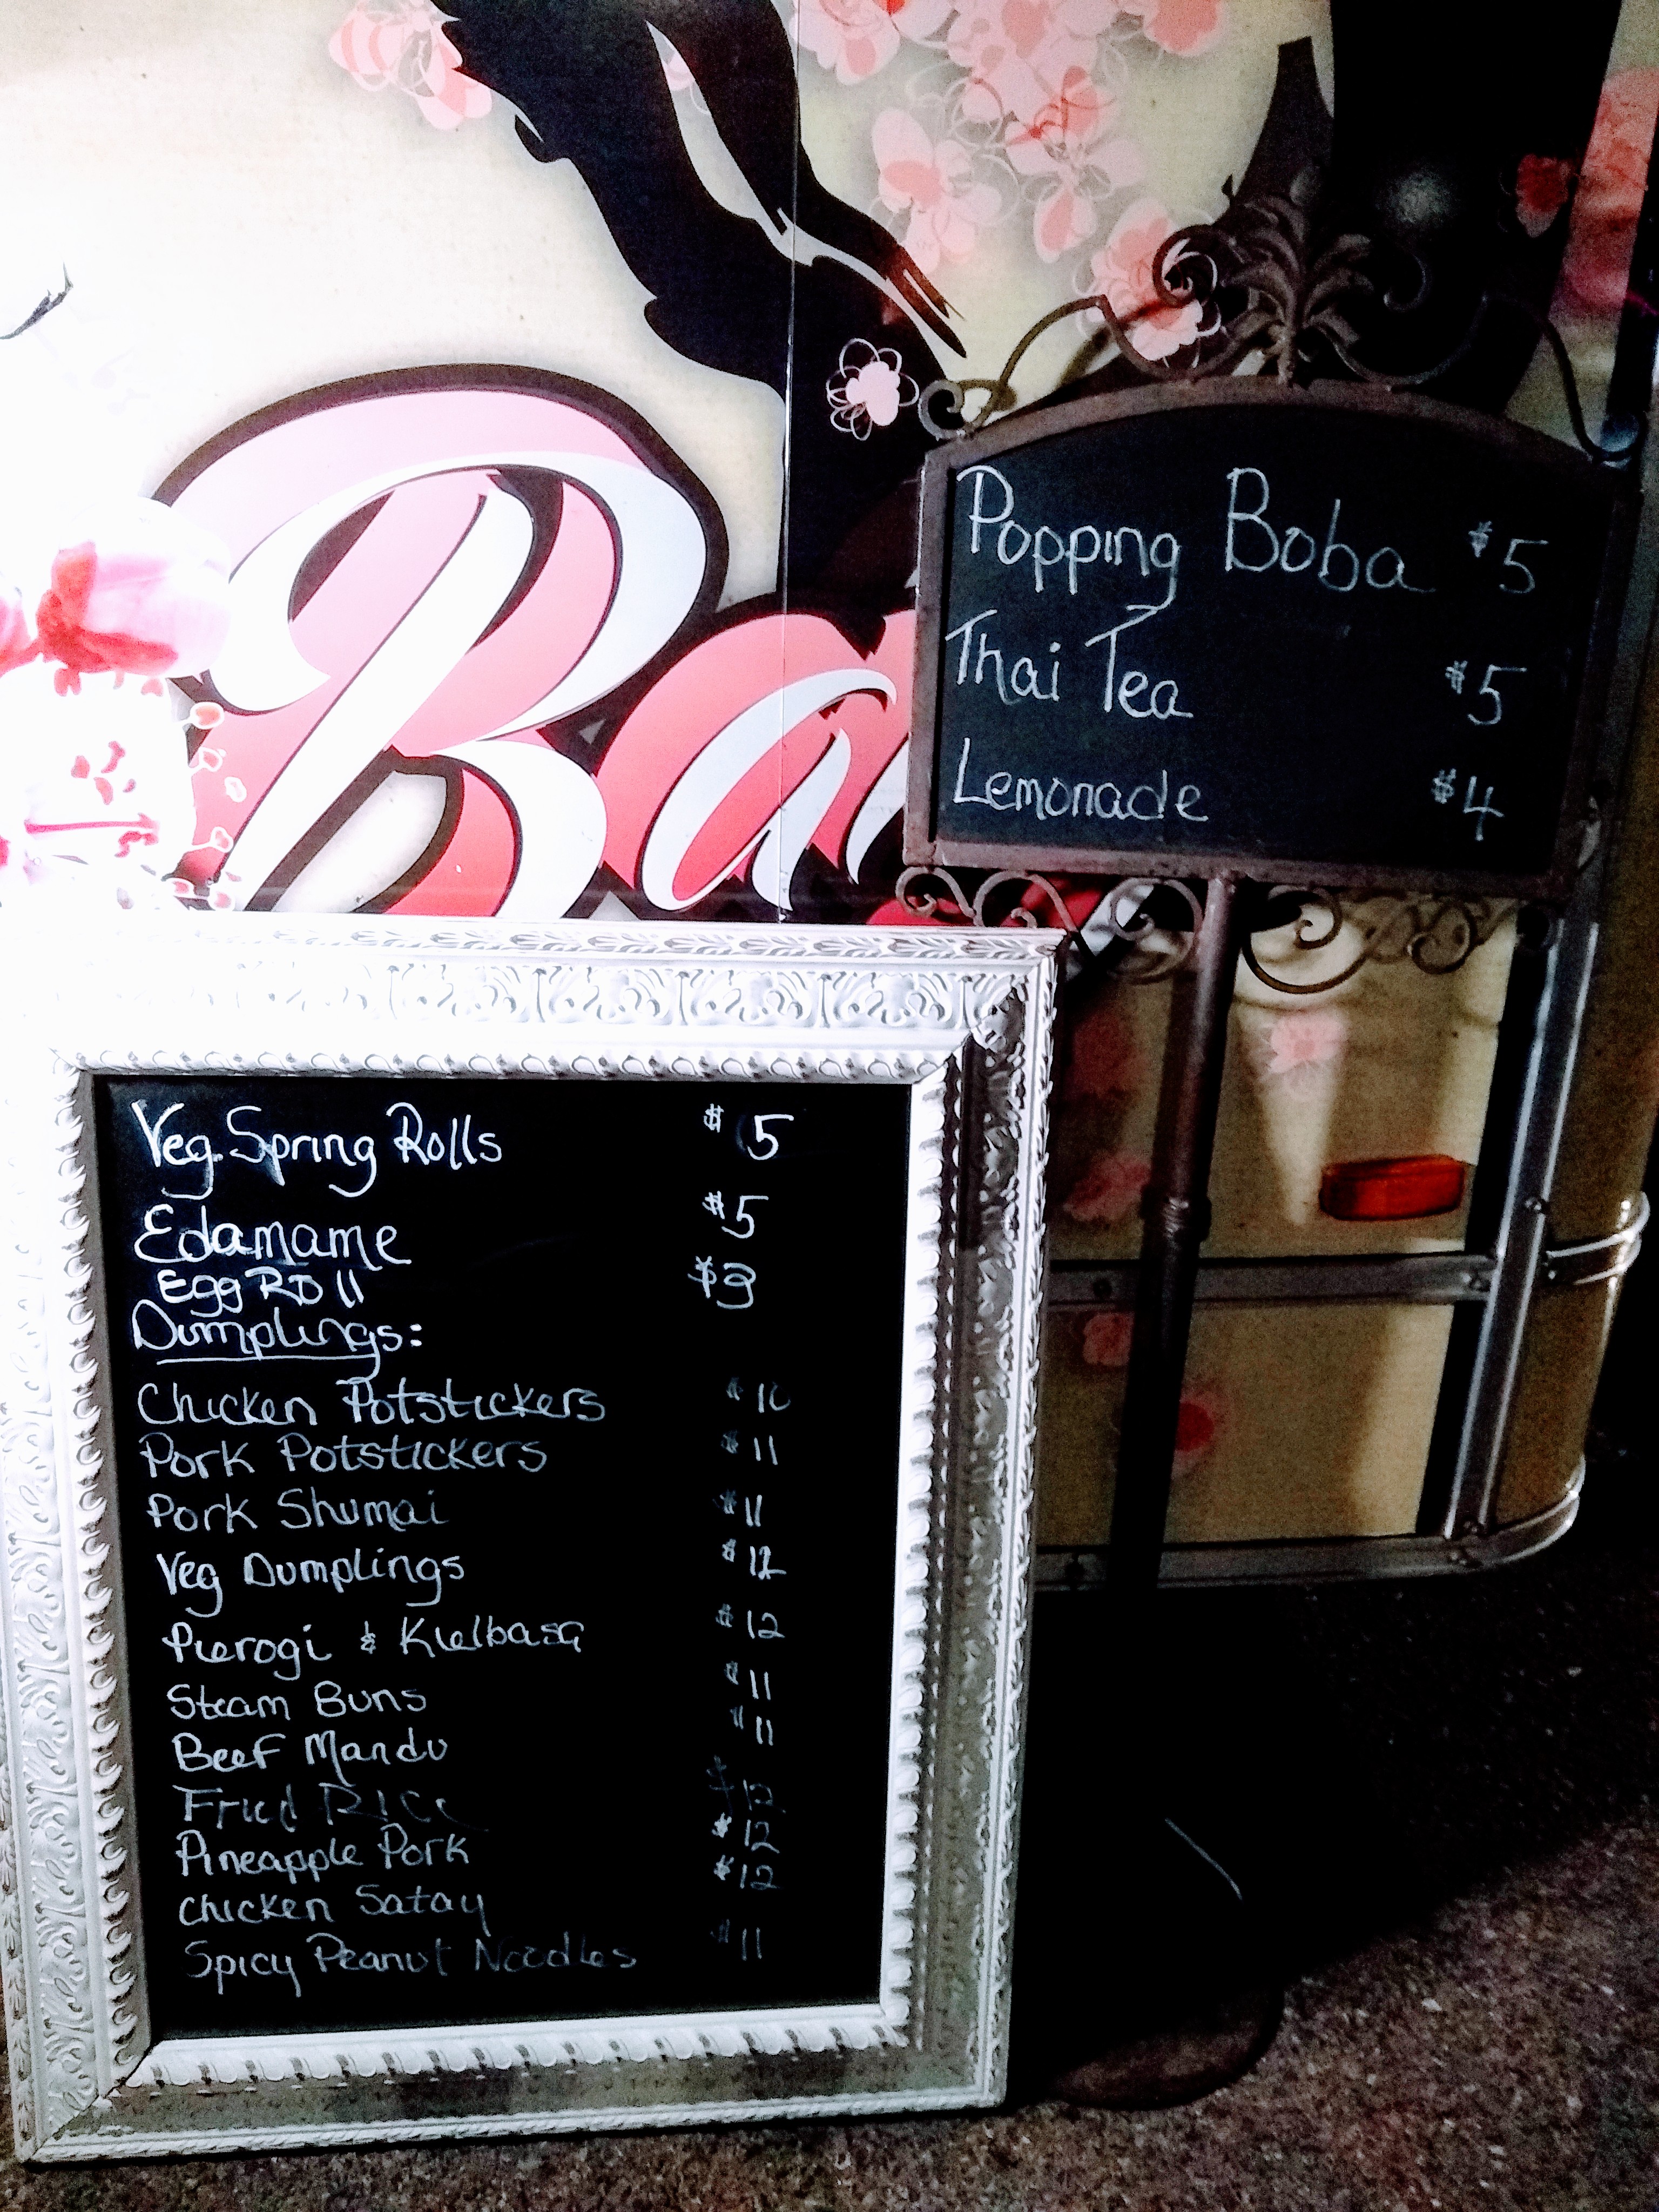 Ba
Popping Boba $5
Thai Tea $5
Lemonade $4
Veg. Spring Rolls $5
Edamame $5
Egg Roll $3
Dumplings:
Chicken Potstickers $10
Pork Potstickers $11
Pork Shumai $11
Veg Dumplings $12
Pierogi & Kielbasa $12
Steam Buns $11
Beef Mandu $11
Fried Rice $12
Pineapple Pork $12
Chicken Satay $12
Spicy Peanut Noodles $11